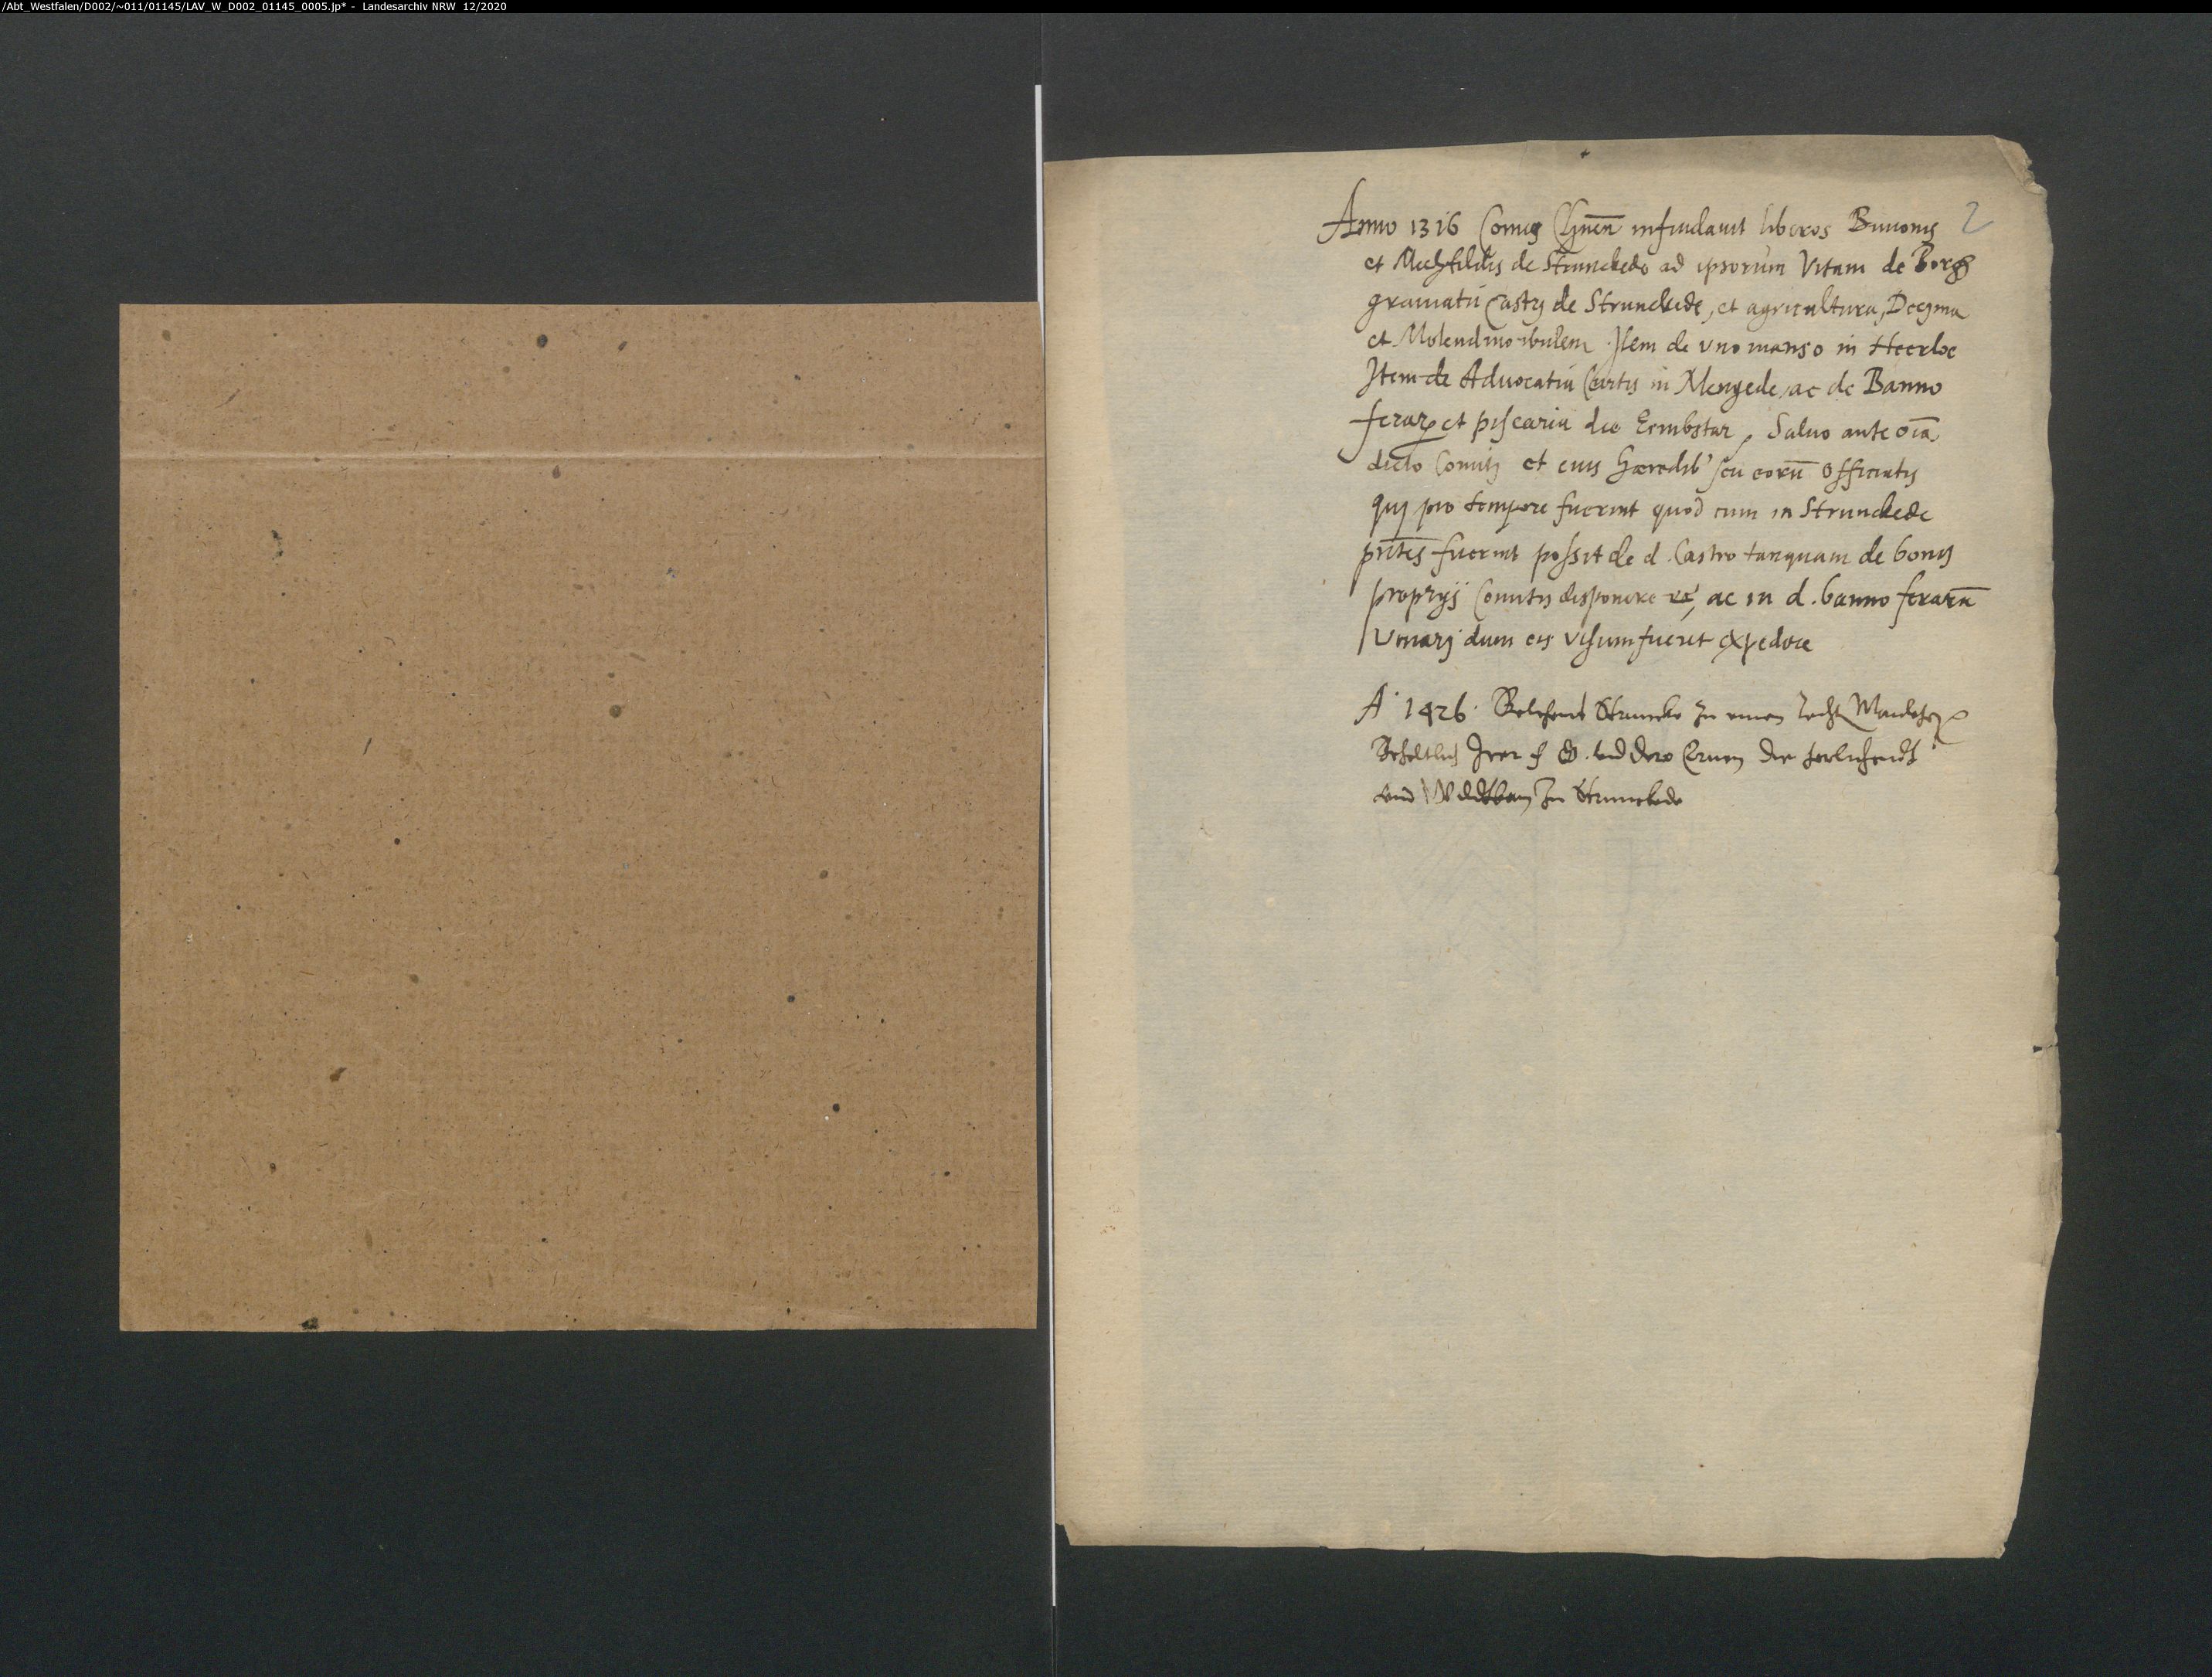 /Abt_Westfalen/D002/~011/01145/LAV_W_D002_01145_0005.jp* - Landesarchiv NRW 12/2020
2
Anno 1316 Comes infeudauit liberos
et Mechtildis de Strunckede ad ipsorum Vitam de Borg
grauiatu Castri de Strunckede, et agricultura, Decima
et Molendino ibidem Item de vno manso in
Item de Aduocatia Curtis in Mengede, ac de Banno
ferarꝝ et piscaria die, Saluo ante oīa
dicto Comiti et eius hæredib' seu eorū Officiatis
qui pro tempore fuerint quod cum in Strunckede
pn̄tes fuerint possit de d. Castro tanquam de bonis
proprijs Comitis disponere, ac in d. banno ferarū
Venari dum eis visum fuerit expedire
A° 1426 Strunckede Zu einen
Beholtlich Irer f G. vnd dero Eruen der
vnd Wildtban Zu Strunckede